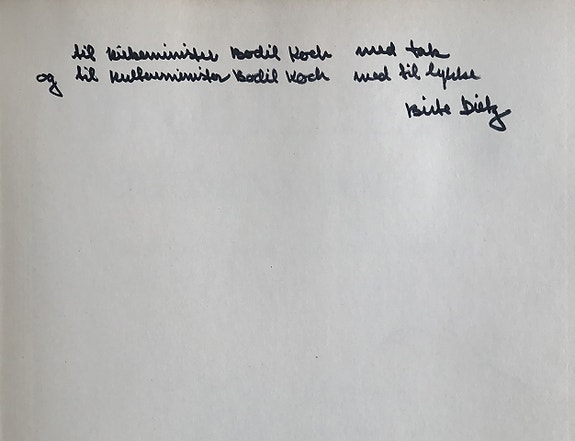 til kirkeminister Bodil Koch med tak
og til kulturminister Bodil Koch med til lykke
Birte Dietz